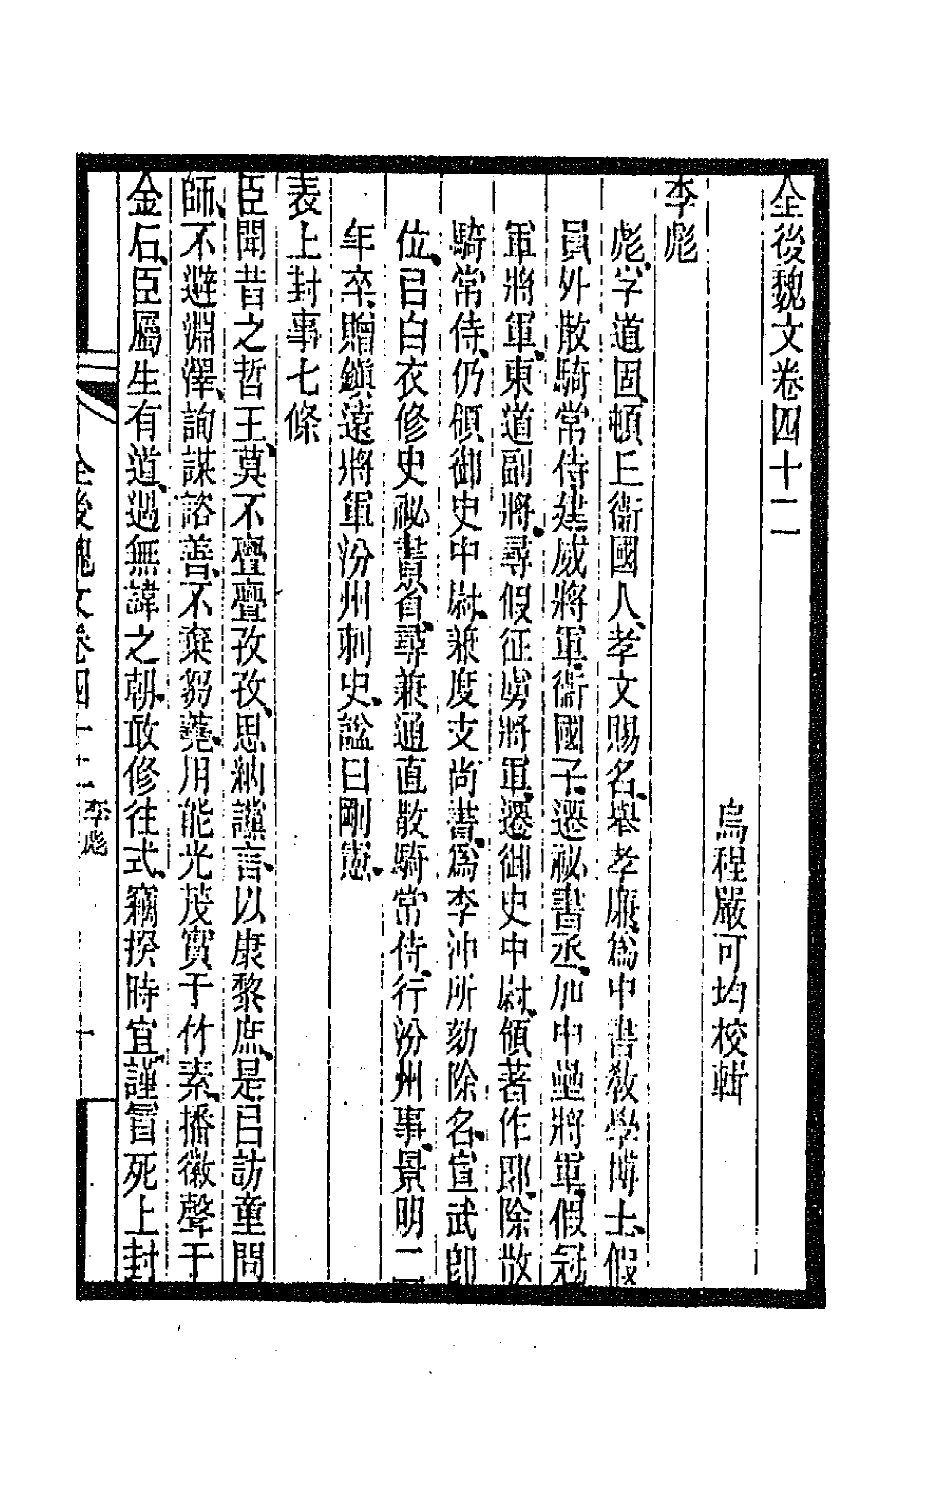 全後魏文卷四十二
烏程嚴可均校輯
李彪
彪、字道固、頓丘衞國人、孝文賜名、舉孝廉、爲中書敎學博士、假
員外散騎常侍建威將軍、衞國子、遷祕書丞、加中壘將軍、假冠
軍將軍、東道副將、尋假征虜將軍、遷御史中尉、領著作郎、除散
騎常侍、仍領御史中尉、兼度支尚書、爲李沖所劾除名、宣武卽
位、㠯白衣修史祕書省、尋兼通直散騎常侍、行汾州事、景明二
年卒、贈鎭遠將軍汾州刺史、諡曰剛憲、
表上封事七條
臣聞昔之哲王、莫不亹亹孜孜、思納讜言、以康黎庶、是㠯訪童問
師、不避淵澤、詢謀諮善、不棄芻蕘、用能光茂實于竹素、播徽聲于
金石、臣屬生有道、遇無諱之朝、敢修往式、竊揆時宜、謹冒死上封
全後魏文卷四十二 李彪 一